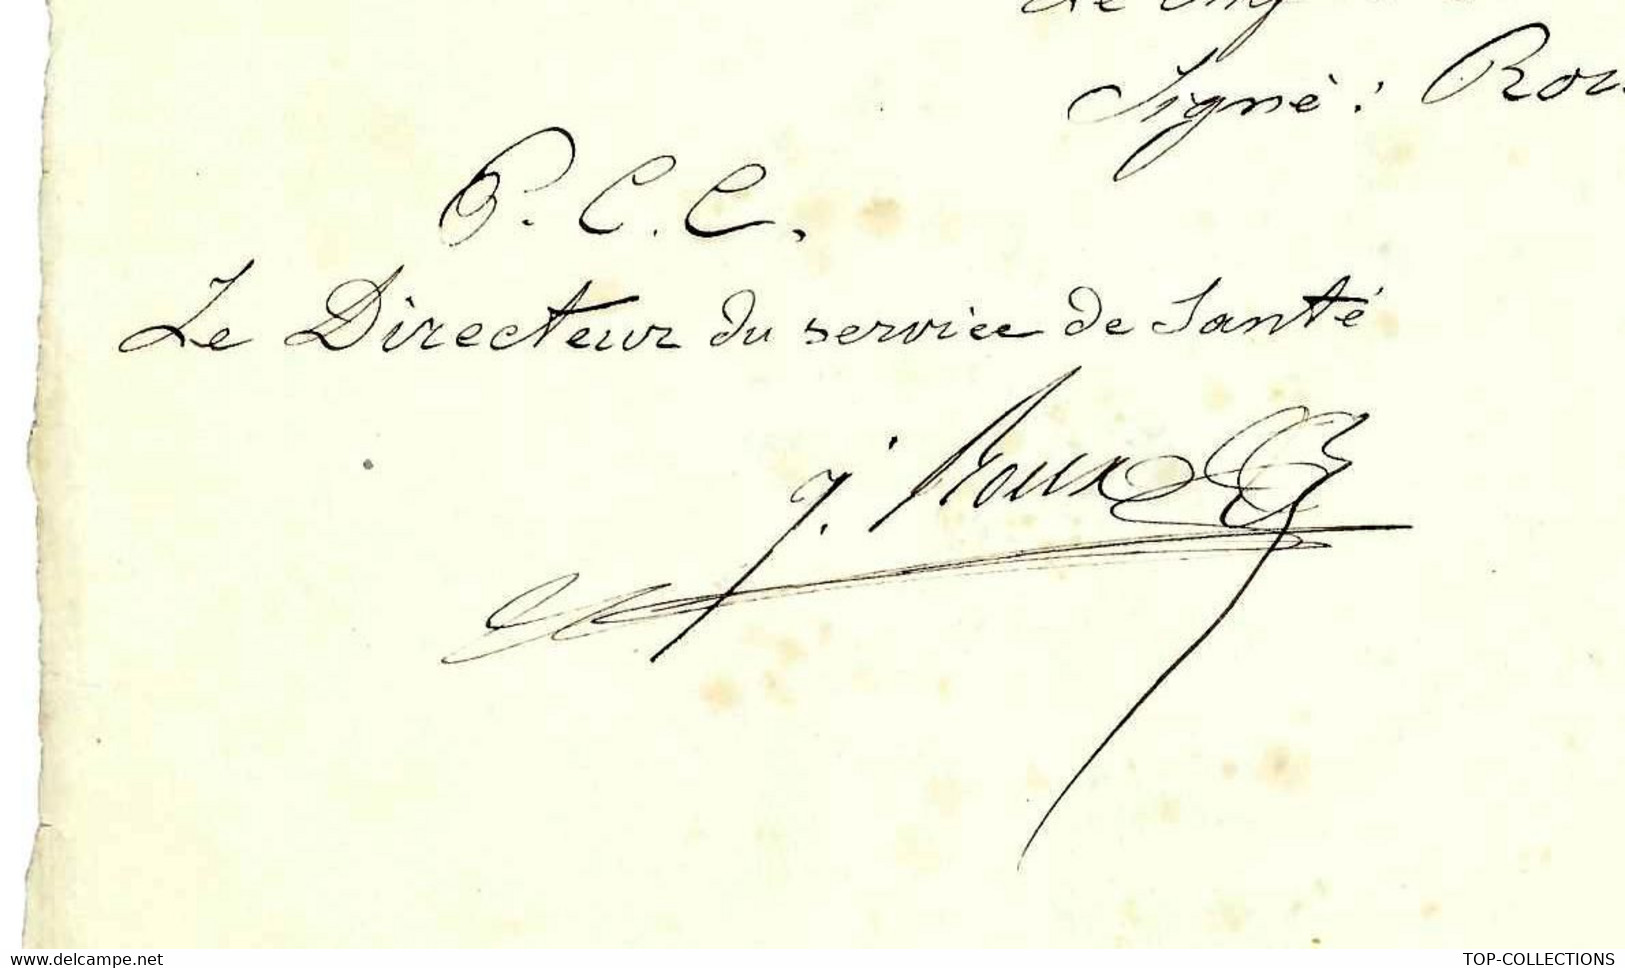 Signé :
P. C. C.
Le Directeur du service de Santé
J. Roux
www.delcampe.net
TOP-COLLECTIONS